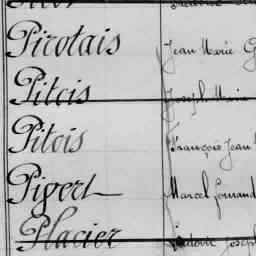 Pirotais Jean Marie G
Pitois Joseph Marie
Pitois François Jean
Pivert Marcel Fernand
Placier Isidore Joseph